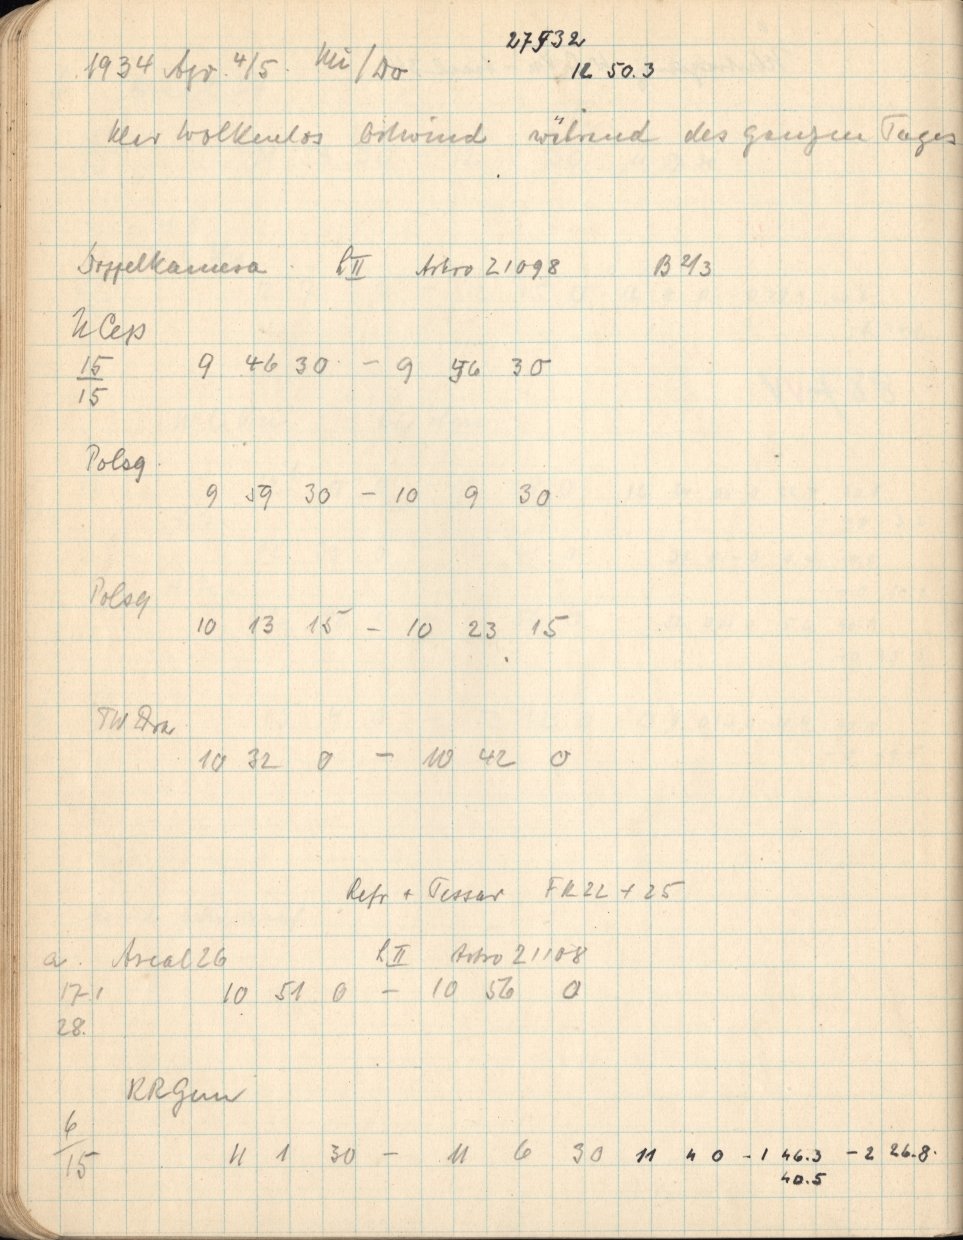 27932
1934 Apr. 4/5. Mi/Do
12 50.3
klar wolkenlos Ostwind während des ganzen Tages
Doppelkamera L II Astro 21098 B 2/3
U Cep
15 9 46 30 - 9 56 30
15
Polsq
9 59 30 - 10 9 30
Polsq
10 13 15 - 10 23 15
TW Dra
10 32 0 - 10 42 0
Refr + Tessar FK 22 + 25
a Areal 26 L II Astro 21108
17-1 10 51 0 - 10 56 0
28.
RR Gem
6
15 11 1 30 - 11 6 30 11 4 0 -1 46.3 -2 26.8.
40.5